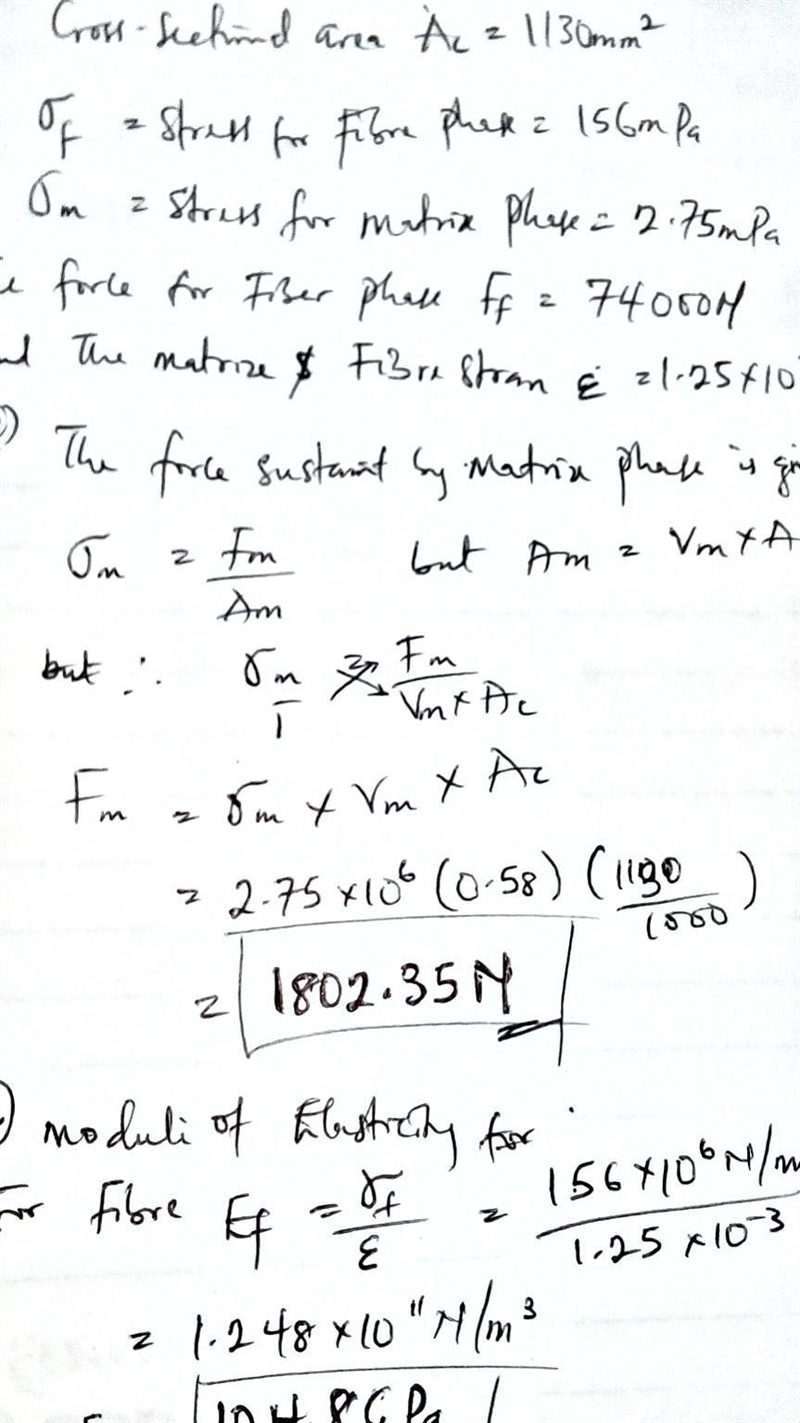 Cross-Sectional area Ac = 1130mm²
σf = Stress for Fibre phase = 156mPa
σm = Stress for matrix Phase = 2.75mPa
force for Fiber phase Ff = 74000N
The matrize & Fibre Stran ε = 1.25×10
The force sustaint by Matrix phase is
σm = Fm/Am but Am = Vm × A
but ∴ σm/1 = Fm/Vm × Ac
Fm = σm × Vm × Ac
= 2.75 ×10⁶ (0.58) (1130/1000)
= 1802.35N
moduli of Elasticity for
For fibre Ef = σf/ε = 156×10⁶N/m/1.25 ×10⁻³
= 1.248 ×10¹¹ N/m³